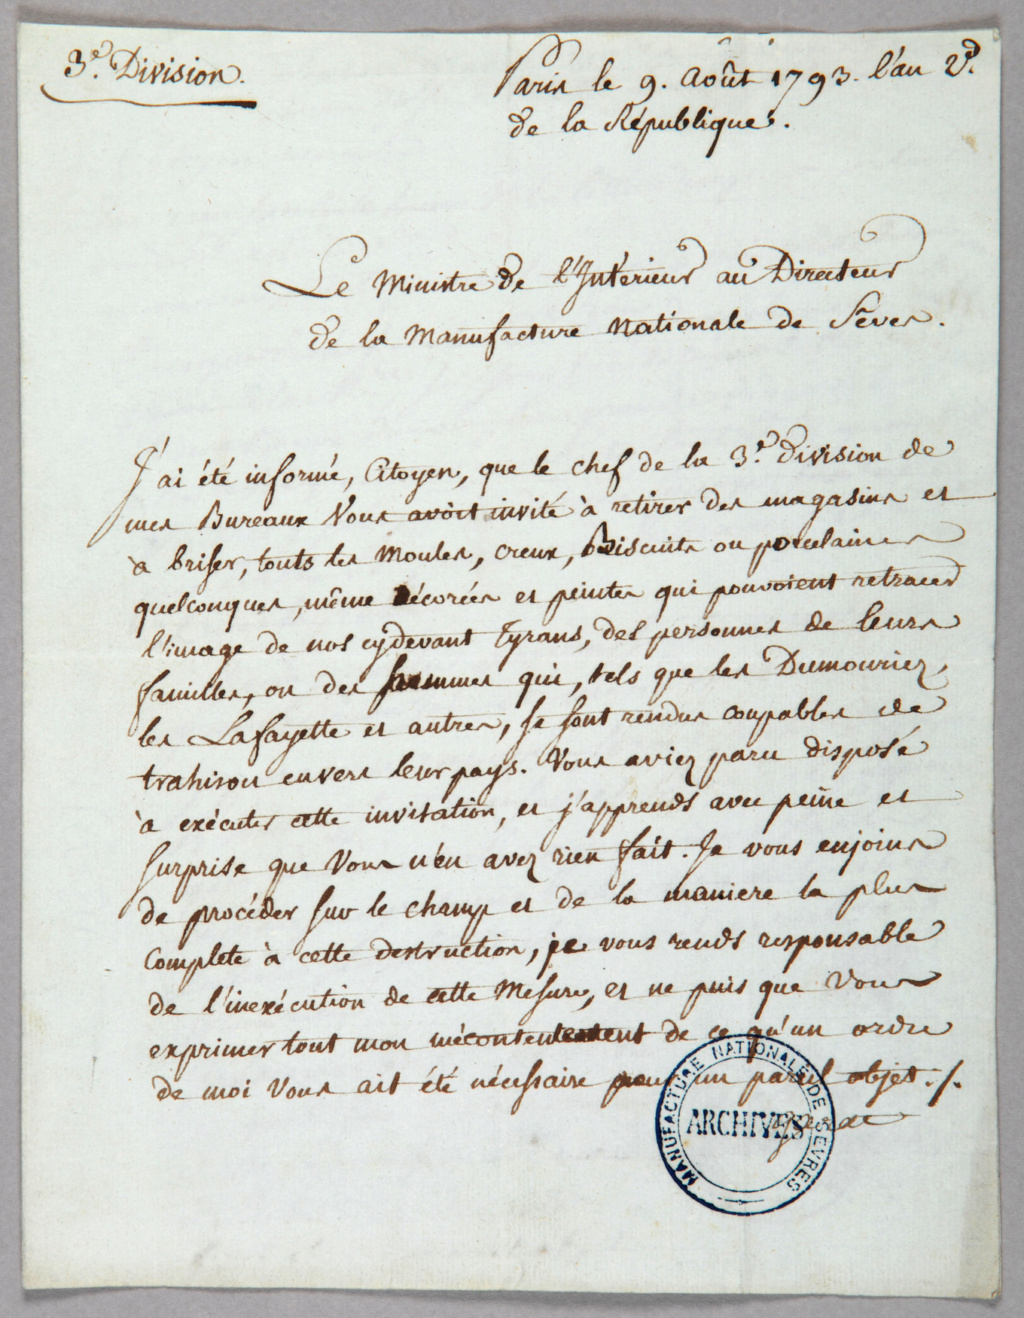 3.e Division.
Paris le 9. Août 1793. l'an 2.d
de la République.
Le Ministre de l'Intérieur au Directeur
de la Manufacture Nationale de Sêves.
J'ai été informé, Citoyen, que le chef de la 3.e Division de
mes Bureaux Vous avoit invité à retirer des magasins et
à briser, touts les Moules, creux, Biscuits ou porcelaines
quelconques, même Décorées et peintes qui pouvoient retracer
l'image de nos cydevant Tyrans, des personnes de leurs
familles, ou des hommes qui, tels que les Dumouriez,
les Lafayette et autres, se sont rendus coupables de
trahison envers leur pays. Vous aviez paru disposé
à exécuter cette invitation, et j'apprends avec peine et
surprise que Vous n'en avez rien fait. Je vous enjoins
de procéder sur le champ et de la maniere la plus
Complete à cette destruction, je vous rends responsable
de l'inexécution de cette Mesure, et ne puis que Vous
exprimer tout mon mécontentement de ce qu'un ordre
de moi Vous ait été nécessaire pour un pareil objet ./.
Garat
MANUFACTURE NATIONALE DE SEVRES
ARCHIVES